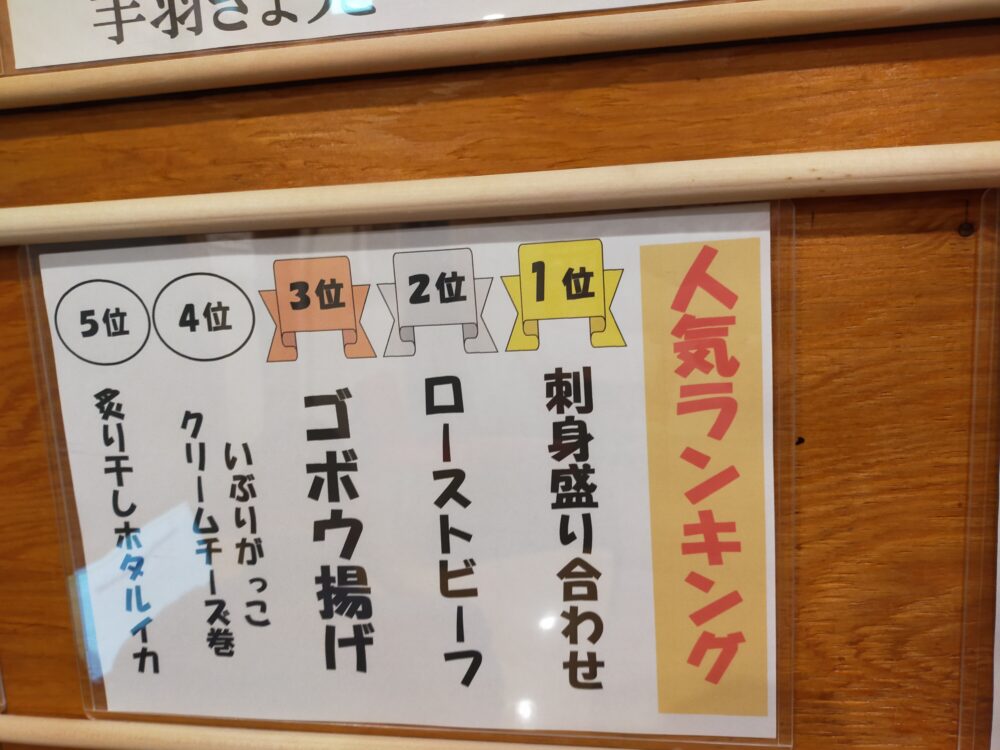 手羽ぎょうざ
人気ランキング
1位
刺身盛り合わせ
2位
ローストビーフ
3位
ゴボウ揚げ
4位
いぶりがっこ
クリームチーズ巻
5位
炙り干しホタルイカ